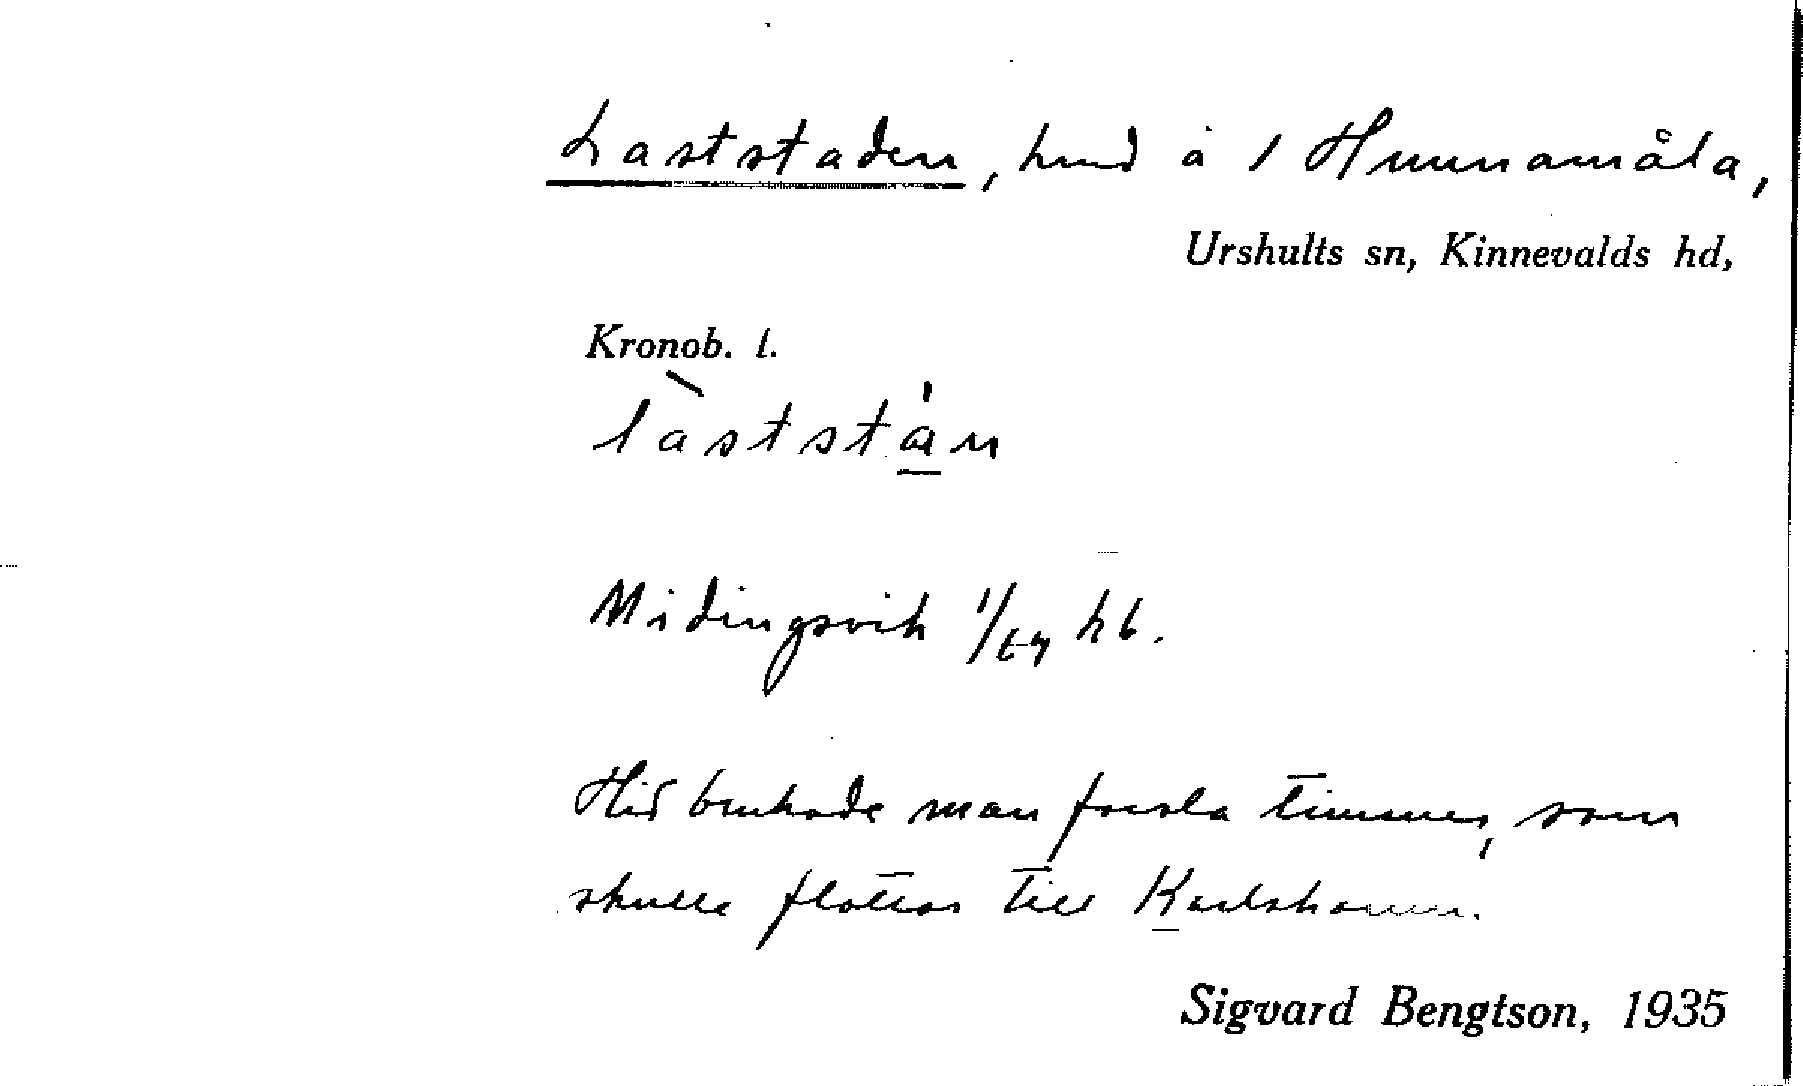 Laststaden, hmd å 1 Hunnamåla,
Urshults sn, Kinnevalds hd,
Kronob. l.
làststa̲̍n
Midingsvik 1/ hb.
Hid brukade man forsla timmer, som
skulle flottas till Karlshamn.
Sigvard Bengtson, 1935